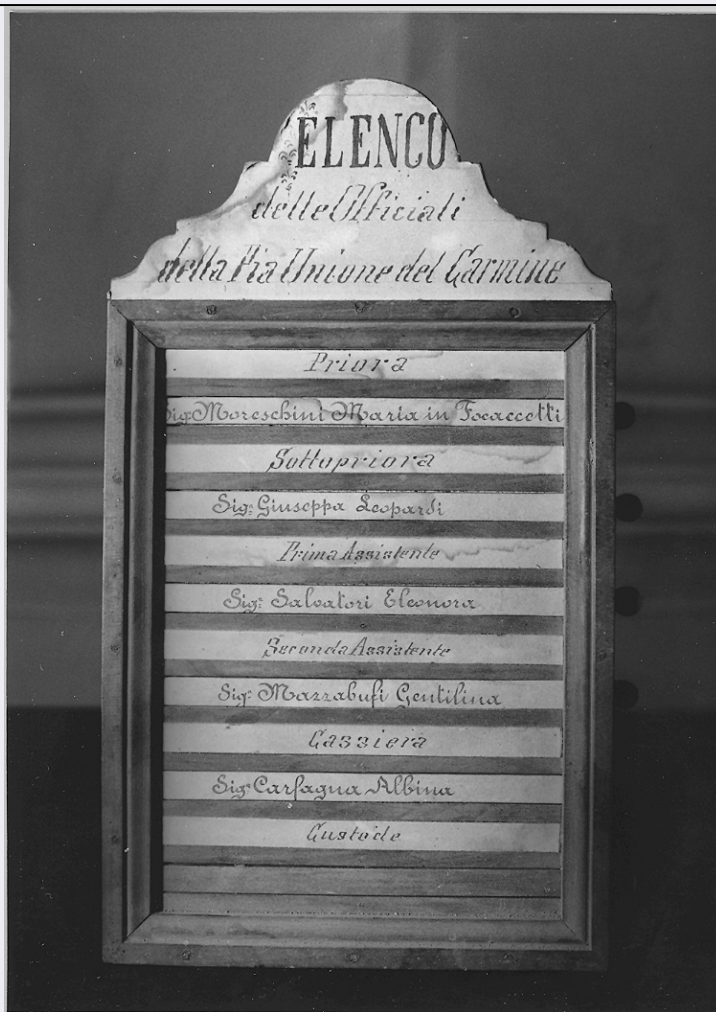 ELENCO
delle Officiali
della Pia Unione del Carmine
Priora
Sig: Moreschini Maria in Focaccetti
Sottopriora
Sig: Giuseppa Leopardi
Prima Assistente
Sig: Salvatori Eleonora
Seconda Assistente
Sig: Mazzabufi Gentilina
Cassiera
Sig: Carfagna Albina
Custode